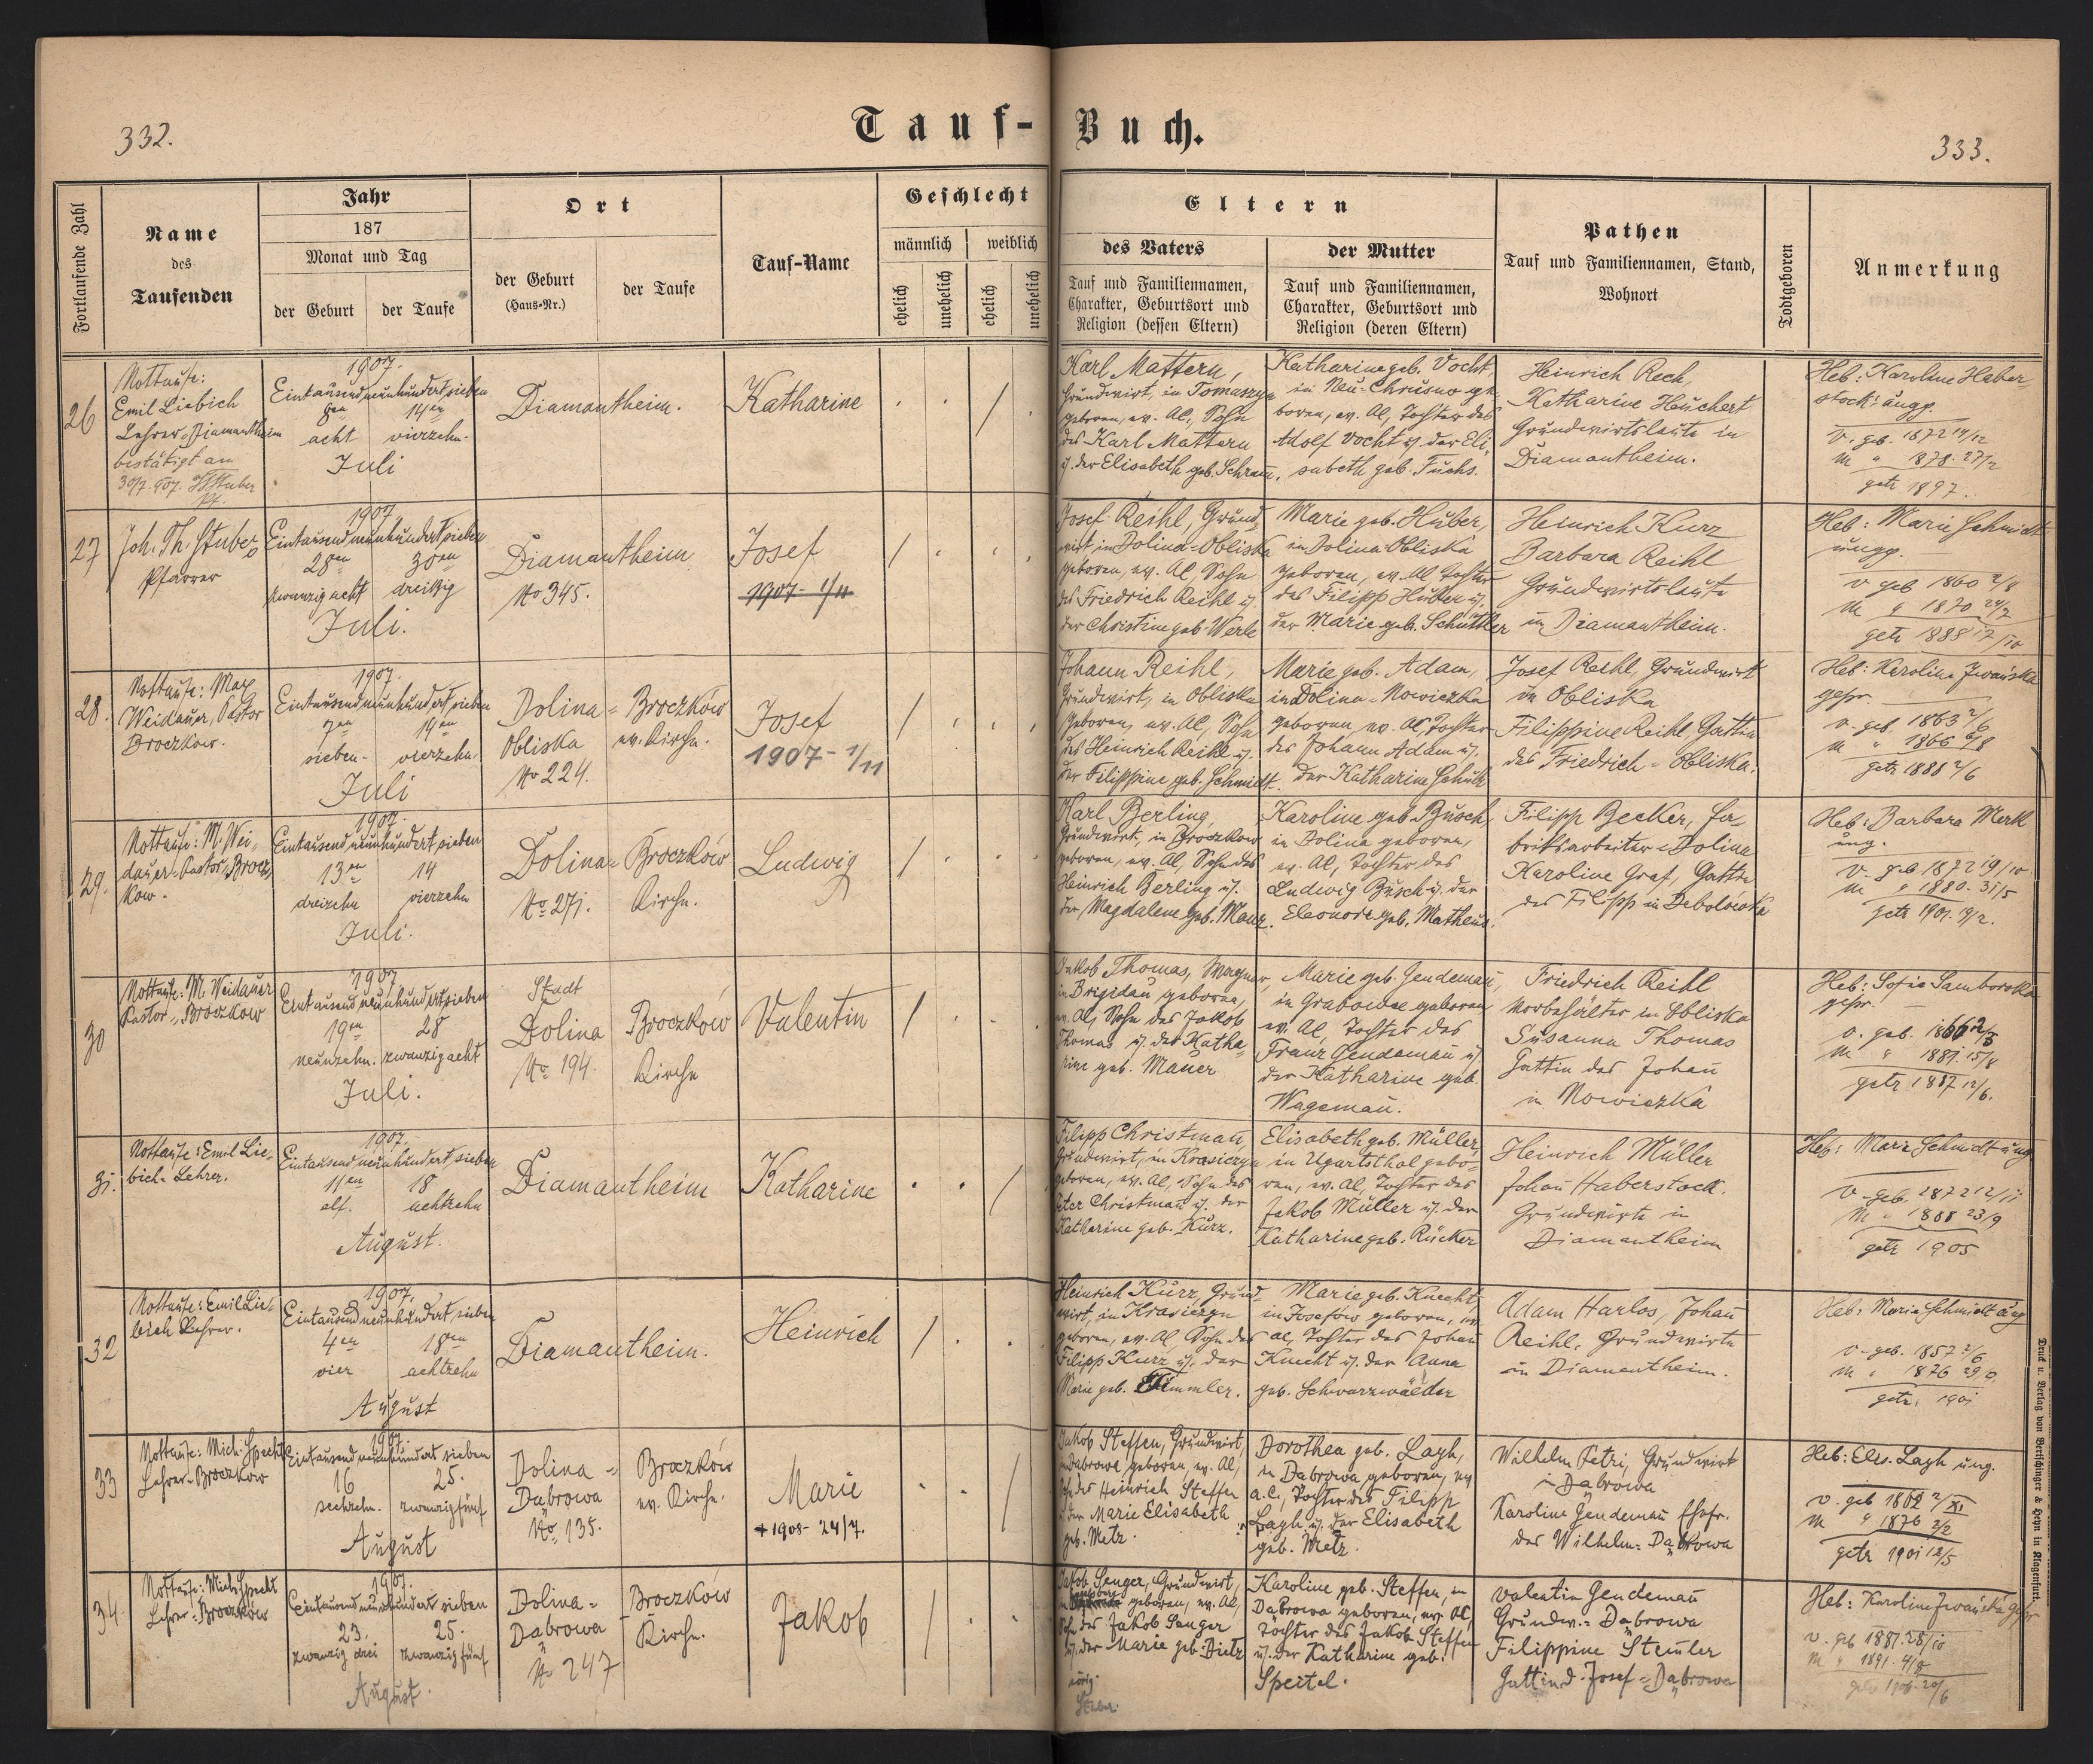 332.
Tauf-Buch.
333.
Fortlaufende Zahl
Name
des
Taufenden
Jahr
187
Monat und Tag
der Geburt
der Taufe
Ort
der Geburt
(Haus-Nr.)
der Taufe
Tauf-Name
Geschlecht
männlich
weiblich
ehelich
unehelich
ehelich
unehelich
Eltern
des Vaters
Tauf und Familiennamen,
Charakter, Geburtsort und
Religion (dessen Eltern)
der Mutter
Tauf und Familiennamen,
Charakter, Geburtsort und
Religion (deren Eltern)
Pathen
Tauf und Familiennamen, Stand,
Wohnort
Todtgeboren
Anmerkung
26
Nottaufe:
Emil Liebich
Lehrer, Diamantheim
bestätigt am
30/7. 907. Stuber
Pf.
1907.
Eintausendneunhundertsieben
8en
14en
acht
vierzehn
Juli
Diamantheim.
Katharine
Karl Mattern,
Grundwirt, in Tomaszyn
geboren, ev. Al., Sohn
des Karl Mattern
u. der Elisabeth geb. Schram.
Katharine geb. Vocht
in Neu-Chrusno ge-
boren, ev. Al, Tochter des
Adolf Vocht u. der Eli-
sabeth geb. Fuchs.
Heinrich Rech,
Katharine Heuchert
Grundwirtsleute in
Diamantheim.
Heb: Karoline Haber
stock: ungg.
v. geb. 1872 14/12
m " 1878. 27/2
getr 1897.
27
Joh. Th. Stuber
Pfarrer
1907.
Eintausendneunhundertsieben
28en
30en
zwanzigacht
dreißig
Juli.
Diamantheim
No 345.
Josef
1907- 1/11
Josef Reihl, Grund-
wirt, in Dolina-Obliska
geboren, ev. Al, Sohn
des Friedrich Reihl u.
der Christine geb. Werle
Marie geb. Huber,
in Dolina-Obliska
geboren, ev. Al Tochter
des Filipp Huber u.
der Marie geb. Schüttler
Heinrich Kurz
Barbara Reihl
Grundwirtsleute
in Diamantheim.
Heb: Marie Schmidt
ungg.
v geb 1860 2/8
m " 1870 24/2
getr 1888 17/10
28.
Nottaufe: Max
Weidauer, Pastor
Broczkow.
1907.
Eintausendneunhundertsieben
7en
14en
sieben
vierzehn
Juli
Dolina-
Obliska
No 224.
Broczków
ev. Kirche.
Josef
1907- 1/11
Johann Reihl,
Grundwirt, in Obliska
geboren, ev. Al, Sohn
des Heinrich Reihl u.
der Filippine geb. Schmidt.
Marie geb. Adam,
in Dolina-Nowiczka
geboren, ev. Al, Tochter
des Johann Adam u.
der Katharine Schick
Josef Reihl, Grundwirt
in Obliska
Filippine Reihl, Gattin
des Friedrich-Obliska.
Heb: Karoline Iwańska
gepr.
v. geb 1863 2/6
m " 1866 6/8
getr 1888 2/6
29.
Nottaufe: M. Wei-
dauer, Pastor, Brocz-
kow.
1907.
Eintausend neunhundert sieben
13en
14
dreizehn
vierzehn
Juli.
Dolina-
No 271.
Broczków
Kirche.
Ludwig
Karl Berling,
Grundwirt, in Broczkow
geboren, ev. Al, Sohn des
Heinrich Berling u.
der Magdalene geb. Mauz.
Karoline geb. Busch,
in Dolina geboren,
ev. Al, Tochter des
Ludwig Busch u. der
Eleonore geb. Matheus.
Filipp Becker, Fa-
briksarbeiter-Dolina
Karoline Graf, Gattin
des Filipp in Debolowka
Heb: Barbara Merk
ung.
v. geb 1872 19/10
m " 1880. 31/5
getr 1901. 19/2.
30
Nottaufe: M. Weidauer
Pastor, Broczkow
1907
Eintausend neunhundertsieben
19en
28
neunzehn.
zwanzigacht
Juli.
Stadt
Dolina
No. 194.
Broczkow
Kirche
Valentin
Jakob Thomas, Wagner,
in Brigidau geboren,
ev. Al, Sohn des Jakob
Thomas u. der Katha-
rine geb. Mauer
Marie geb. Gendemañ,
in Grabowce geboren
ev. Al, Tochter des
Franz Gendemañ u.
der Katharine geb.
Wagemañ.
Friedrich Reihl
in Obliska
Susanna Thomas
Gattin des Johañ
in Nowiczka
Heb: Sofie Samborska
gepr.
v. geb. 1866 2/5
m " 1881. 15/8
getr 1887 12/6.
31.
Nottaufe: Emil Lie-
bich- Lehrer.
1907.
Eintausend neunhundertsieben
11en
18
elf.
achtzehn
August.
Diamantheim
Katharine
Filipp Christmañ,
Grundwirt, in Krasiczyn
geboren, ev. Al, Sohn des
Peter Christmañ u. der
Katharine geb. Kurz.
Elisabeth geb. Müller,
in Ugartsthal gebo-
ren, ev. Al, Tochter des
Jakob Müller u. der
Katharine geb. Rücker
Heinrich Müller
Johañ Haberstock.
Grundwirte in
Diamantheim
Heb: Marie Schmidt ung
v. geb. 1872 12/11
m " 1888 23/9
getr 1905
32
Nottaufe: Emil Lie-
bich Lehrer.
1907.
Eintausend neunhundert sieben
4en
18en
vier
achtzehn
August
Diamantheim.
Heinrich
Heinrich Kurz, Grund-
wirt, in Krasiczyn
geboren, ev. Al, Sohn des
Filipp Kurz u. der
Marie geb. Himmler.
Marie geb. Knecht,
in Josefow geboren, ev.
Al, Tochter des Johañ
Knecht u. der Anna
geb. Schwarzwälder
Adam Harlos, Johañ
Reihl, Grundwirte
in Diamantheim.
Heb: Marie Schmidt ung
v. geb. 1857 2/6
m " 1876 29/9
getr. 1901
33
Nottaufe: Mich. Specht
Lehrer-Broczkow
1907.
Eintausend neunhundert sieben
16
25.
sechzehn.
zwanzigfünf
August
Dolina-
Dąbrowa
No. 135.
Broczków
ev. Kirche.
Marie
+1908- 24/7.
Jakob Steffen, Grundwirt,
in Dabrowa geboren, ev. Al,
Sohn des Heinrich Steffen
u. der Marie Elisabeth
geb. Metz.
Dorothea geb. Layh,
in Dąbrowa geboren, ev
A.C., Tochter des Filipp
Layh u. der Elisabeth
geb. Metz.
Wilhelm Petri, Grundwirt
in Dąbrowa
Karoline Gendemañ Ehefr.
des Wilhelm-Dąbrowa
Heb: Elis. Layh ung.
v. geb 1862 2/XI
m " 1876 2/2
getr 1901 12/5
34
Nottaufe: Mich. Specht
Lehrer-Broczków
1907.
Eintausend neunhundert sieben
23.
25.
zwanzig drei
zwanzigfünf
August.
Dolina-
Dąbrowa
No 247
Broczków
Kirche.
Jakob
Jakob Senger, Grundwirt,
geboren, ev. Al,
Sohn des Jakob Senger
u. der Marie geb. Dietz
Stuber.
Karoline geb. Steffen, in
Dąbrowa geboren, ev. Al,
Tochter des Jakob Steffen
u. der Katharine geb.
Speitel.
Valentin Gendemañ
Grundw.-Dąbrowa
Filippine Stemler
Gattin d. Josef-Dąbrowa
Heb: Karoline Iwańska gepr
v. geb 1881. 28/10
m " 1891. 4/8
getr 1906. 20/6
Druck u. Verlag von Bertschinger & Heyn in Klagenfurt.